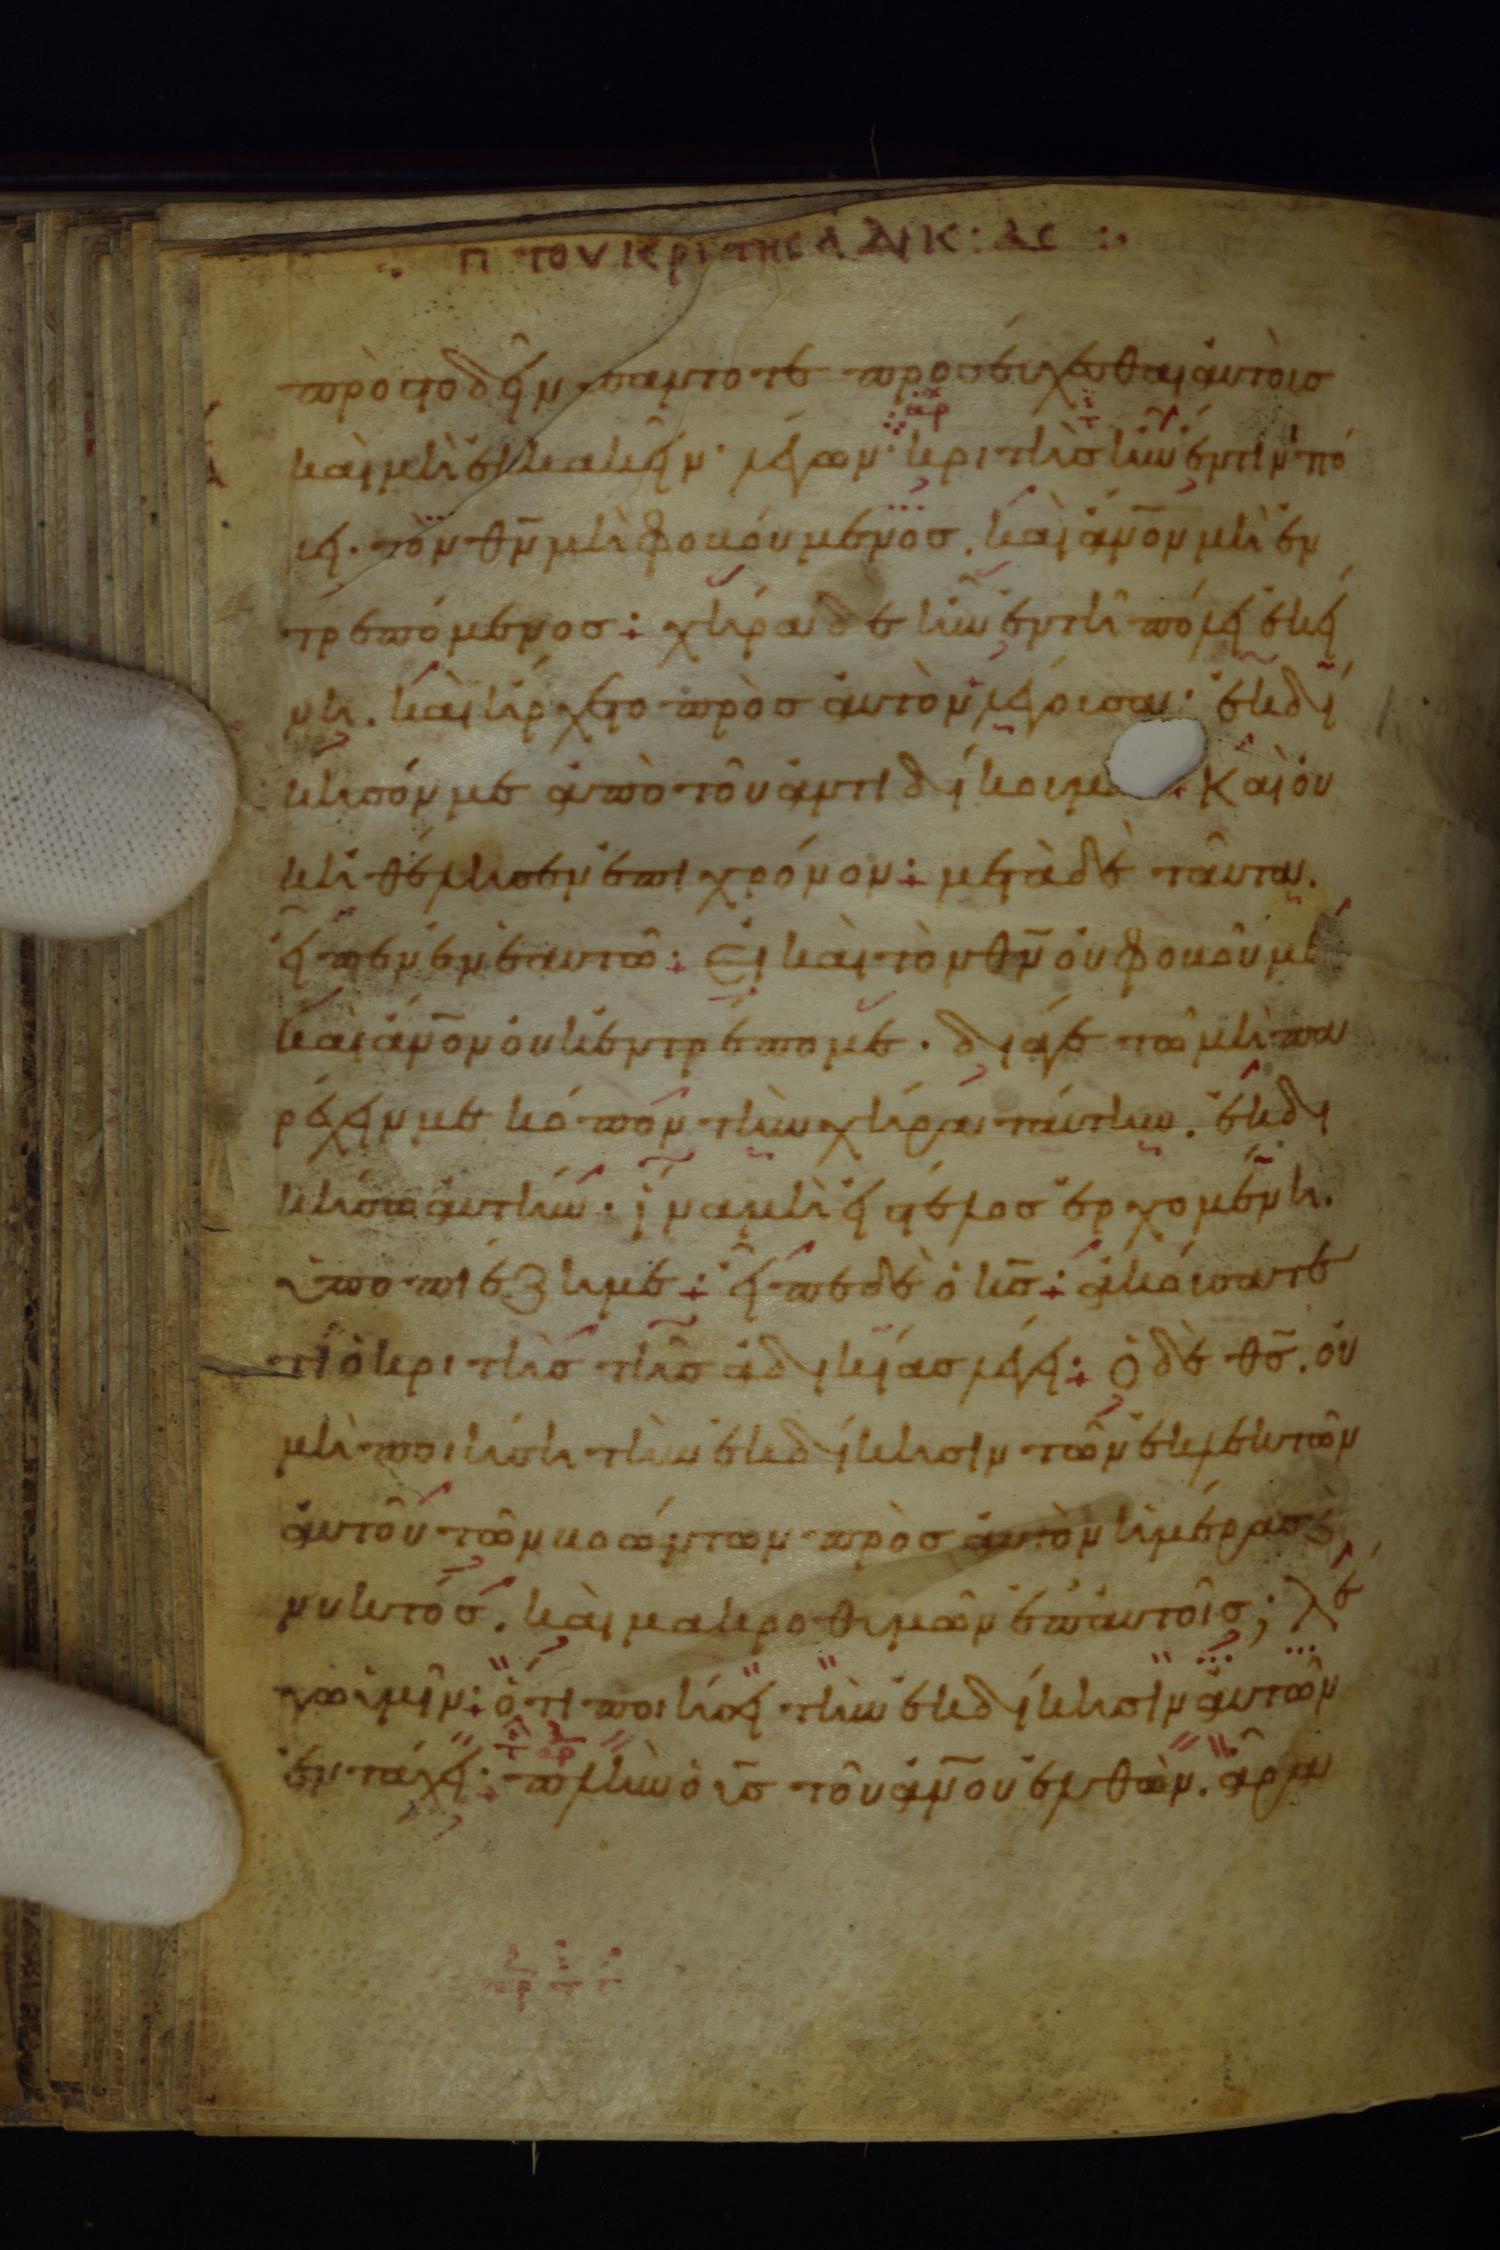 Π ΤΟΥ ΚΡΙΤΗΣ ΑΔΙΚ:ΑΣ :·
πρὸς τὸ δεῖν παντοτε προσεύχεσθαι ἀυτοὶσ
κὰι μὴ ἐκκακεῖν· λέγων· κριτὴσ ἦν ἔν τινι πό
λει· τὸν θν̄ μὴ φοβούμενοσ. κὰι ἀν̄ον μὴ ἐν
τρεπόμενοσ : χήρα δε ἦν ἐν τῆ πόλει ἐκεί
νη. κὰι ἤρχετο πρὸσ ἀυτὸν λέγουσα· ἐκδί
κησόν με ἀπὸ τοῦ ἀντιδίκου μου Καὶ ὀυ
κ ἠθέλησεν ἐπι χρόνον : μετὰ δὲ ταῦτα.
εἶπεν ἐν ἑαυτῶ : Εἰ κὰι τὸν θν̄ ὀυ φοβοῦμε
κὰι ἀν̄ον ὀυκ ἐντρέπομε. διάγε τῶ μὴ πα
ρέχειν με κόπον τὴν χήρα ταύτην. ἐκδι
κήσω ἀυτήν· ἵνα μὴ εἰ τέλοσ ἐρχομένη.
ὑποπιέζη με : εἶπε δὲ ὁ κσ̄ : ἀκούσατε
τί ὁ κριτὴσ τῆσ ἀδικίασ λέγει : ὁ δὲ θσ̄. ὀυ
μὴ ποιήση τὴν ἐκδίκησιν τῶν ἐκλεκτῶν
ἀυτοῦ τῶν βοώντων πρὸσ ἀυτὸν ἡμέρασ ϗ
νυκτόσ. κὰι μακροθυμῶν ἐπ' ἀυτοῖσ; λέ
γω ὑμῖν : ὅτι ποιήσει τὴν ἐκδίκησιν ἀυτῶν
ἐν τάχει : πλὴν ὁ υσ̄ τοῦ ἀν̄ου ἐλθὼν. ἆρα